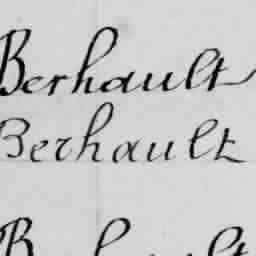 Berhault
Berhault